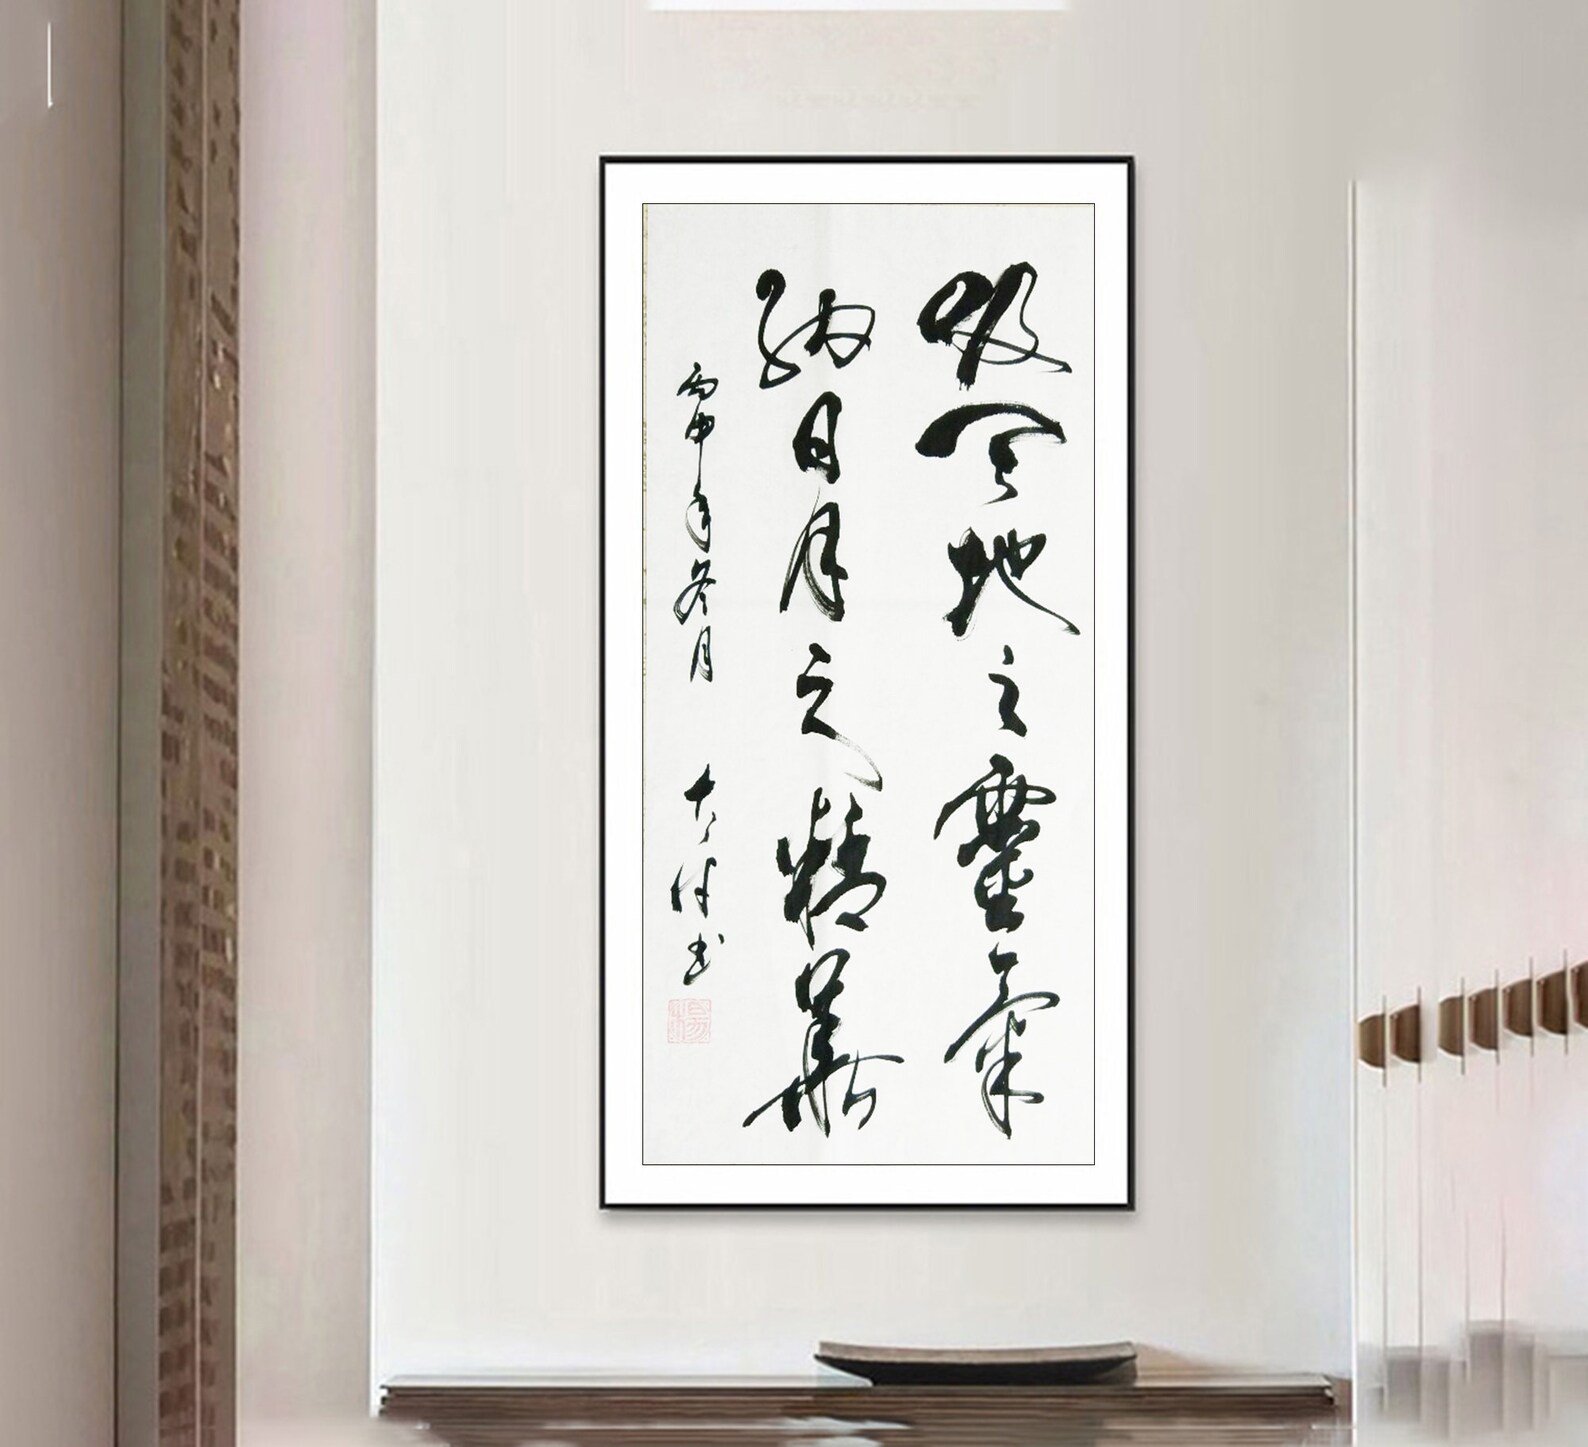 吸天地之靈氣
納日月之精華
丙申年冬月
大 书